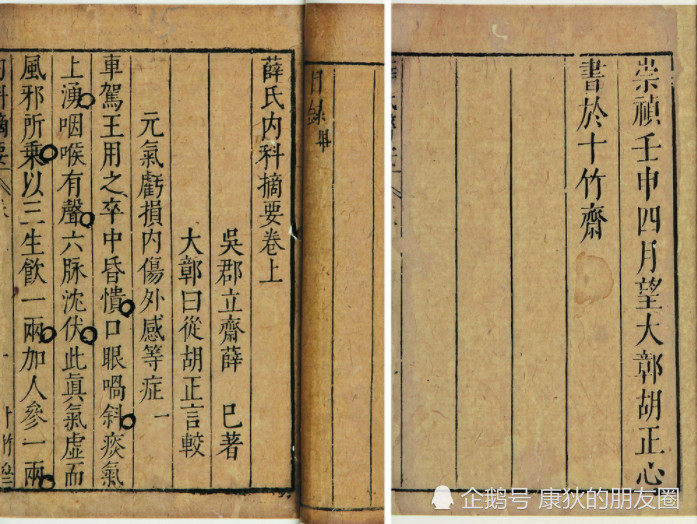 崇禎壬申四月望大鄣胡正心
書於十竹齋
目録畢
薛氏內科摘要卷上
吳郡立齋薛 已著
大鄣曰從胡正言較
元氣虧損內傷外感等症一
車駕王用之卒中昏憒口眼喎斜痰氣
上湧咽喉有聲六脉沈伏此眞氣虛而
風邪所乘以三生飲一兩加人參一兩
企鹅号 康狄的朋友圈